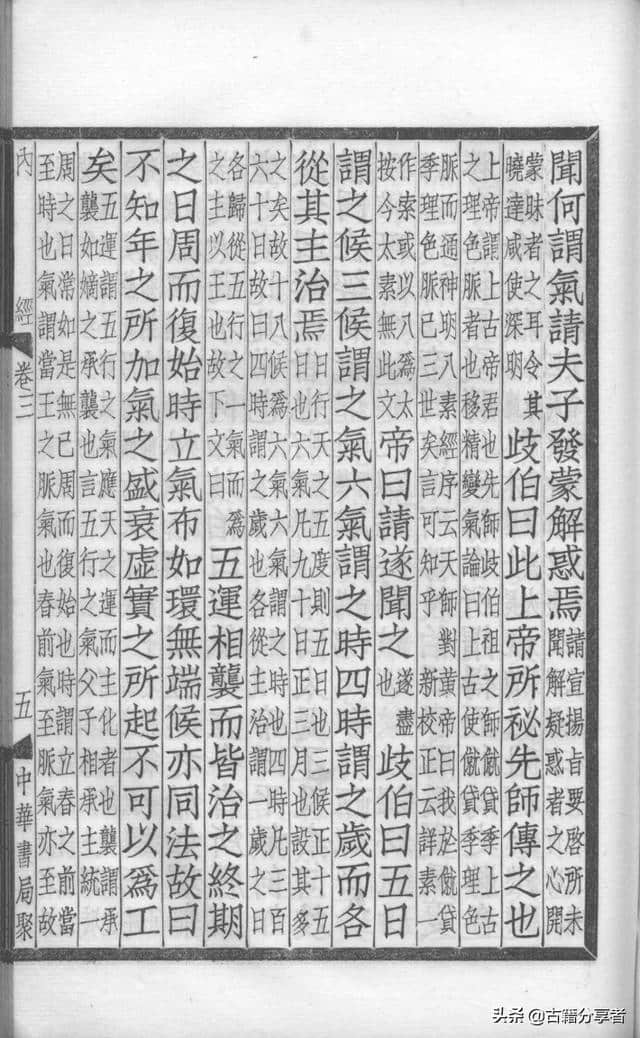 聞何謂氣請夫子發蒙解惑焉
請宣揚旨要啓所未
聞解疑惑者之心開
蒙昧者之耳令其
曉達咸使深明
歧伯曰此上帝所祕先師傳之也
上帝謂上古帝君也先師歧伯祖之師僦貸季上古
之理色脈者也移精變氣論曰上古使僦貸季理色
脈而通神明八素經序云天師對黃帝曰我於僦貸
季理色脈已三世矣言可知乎新校正云詳素一
作索或以八爲太
按今太素無此文
帝曰請遂聞之
遂盡
也
歧伯曰五日
謂之候三候謂之氣六氣謂之時四時謂之歲而各
從其主治焉
日行天之五度則五日也三候正十五
日也六氣凡九十日正三月也設其多
之矣故十八候爲六氣六氣謂之時也四時凡三百
六十日故曰四時謂之歲也各從主治謂一歲之日
各歸從五行之一氣而爲
之主以王也故下文曰
五運相襲而皆治之終期
之日周而復始時立氣布如環無端候亦同法故曰
不知年之所加氣之盛衰虛實之所起不可以爲工
矣
五運謂五行之氣應天之運而主化者也襲謂承
襲如嫡之承襲也言五行之氣父子相承主統一
周之日常如是無已周而復始也時謂立春之前當
至時也氣謂當王之脈氣也春前氣至脈氣亦至故
內經 卷三 五 中華書局聚
头条@古籍分享者